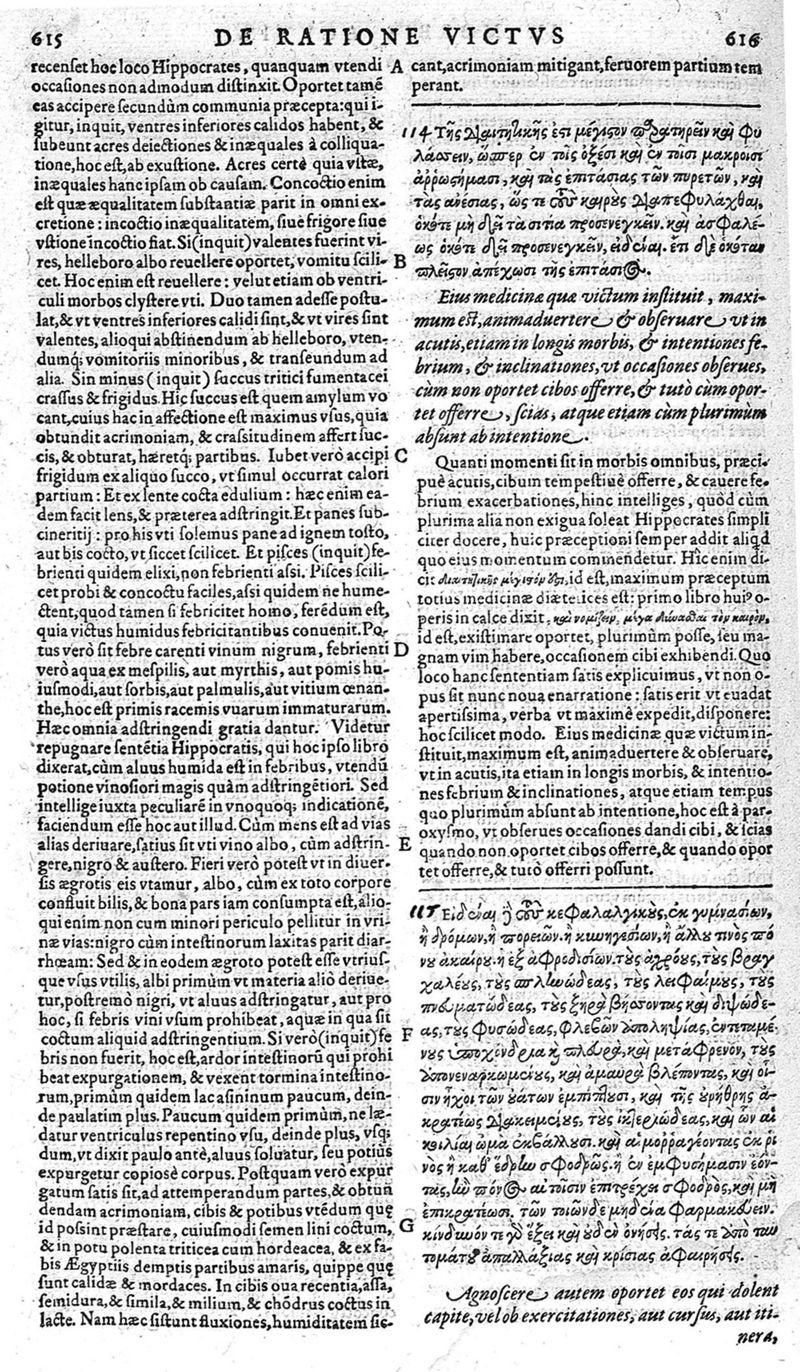 615 DE RATIONE VICTVS 616
recenset hoc loco Hippocrates, quanquam vtendi
occasiones non admodum distinxit. Oportet tamē
eas accipere secundùm communia præcepta: qui i-
gitur, inquit, ventres inferiores calidos habent, &
subeunt acres deiectiones & inæquales à colliqua-
tione, hoc est, ab exustione. Acres certè quia vstæ,
inæquales hanc ipsam ob causam. Concoctio enim
est quæ æqualitatem substantiæ parit in omni ex-
cretione: incoctio inæqualitatem, siue frigore siue
vstione incoctio fiat. Si (inquit) valentes fuerint vi-
res, helleboro albo reuellere oportet, vomitu scili-
cet. Hoc enim est reuellere: velut etiam ob ventri-
culi morbos clystere vti. Duo tamen adesse postu-
lat, & vt ventres inferiores calidi sint, & vt vires sint
valentes, alioqui abstinendum ab helleboro, vten-
dumq; vomitoriis minoribus, & transeundum ad
alia. Sin minus (inquit) succus tritici fumentacei
crassus & frigidus. Hic succus est quem amylum vo
cant, cuius hac in affectione est maximus vsus, quia
obtundit acrimoniam, & crassitudinem affert suc-
cis, & obturat, hæretq; partibus. Iubet verò accipi
frigidum ex aliquo succo, vt simul occurrat calori
partium: Et ex lente cocta edulium: hæc enim ea-
dem facit lens, & præterea adstringit. Et panes sub-
cineritij: pro his vti solemus pane ad ignem tosto,
aut bis cocto, vt siccet scilicet. Et pisces (inquit) fe-
brienti quidem elixi, non febrienti assi. Pisces scili-
cet probi & concoctu faciles, assi quidem ne hume-
ctent, quod tamen si febricitet homo, ferēdum est,
quia victus humidus febricitantibus conuenit. Po-
tus verò sit febre carenti vinum nigrum, febrienti
verò aqua ex mespilis, aut myrthis, aut pomis hu-
iusmodi, aut sorbis, aut palmulis, aut vitium œnan-
the, hoc est primis racemis vuarum immaturarum.
Hæc omnia adstringendi gratia dantur. Videtur
repugnare sentētia Hippocratis, qui hoc ipso libro
dixerat, cùm aluus humida est in febribus, vtendū
potione vinosiori magis quàm adstringētiori. Sed
intellige iuxta peculiarē in vnoquoq; indicationē,
faciendum esse hoc aut illud. Cùm mens est ad vias
alias deriuare, satius sit vti vino albo, cùm adstrin-
gere, nigro & austero. Fieri verò potest vt in diuer-
sis ægrotis eis vtamur, albo, cùm ex toto corpore
confluit bilis, & bona pars iam consumpta est, alio-
qui enim non cum minori periculo pellitur in vri-
næ vias: nigro cùm intestinorum laxitas parit diar-
rhœam: Sed & in eodem ægroto potest esse vtrius-
que vsus vtilis, albi primùm vt materia aliò deriue-
tur, postremò nigri, vt aluus adstringatur, aut pro
hoc, si febris vini vsum prohibeat, aquæ in qua sit
coctum aliquid adstringentium. Si verò (inquit) fe
bris non fuerit, hoc est, ardor intestinorū qui prohi
beat expurgationem, & vexent tormina intestino-
rum, primùm quidem lac asininum paucum, dein-
de paulatim plus. Paucum quidem primùm, ne læ-
datur ventriculus repentino vsu, deinde plus, vsq;
dum, vt dixit paulo antè, aluus soluatur, seu potius
expurgetur copiosè corpus. Postquam verò expur
gatum satis sit, ad attemperandum partes, & obtun
dendam acrimoniam, cibis & potibus vtēdum quę
id possint præstare, cuiusmodi semen lini coctum,
& in potu polenta triticea cum hordeacea, & ex fa-
bis Ægyptiis demptis partibus amaris, quippe quę
sunt calidæ & mordaces. In cibis oua recentia, assa,
semidura, & simila, & milium, & chōdrus coctus in
lacte. Nam hæc sistunt fluxiones, humiditatem sic-
A
B
C
D
E
F
G
cant, acrimoniam mitigant, feruorem partium tem
perant.
114 Τῆς διαιτητικῆς ἐστὶ μέγιστον παρατηρεῖν καὶ φυ
λάσσειν, ὥσπερ ἐν τοῖς ὀξέσι καὶ ἐν τοῖσι μακροῖσι
ἀῤῥωστήμασι, καὶ τὰς ἐπιτάσιας τῶν πυρετῶν, καὶ
τὰς ἀνέσιας, ὥς τε τοὺς καιροὺς διαπεφυλάχθαι,
ὁκότε μὴ δεῖ τὰ σιτία προσενεγκεῖν. καὶ ἀσφαλέ-
ως ὁκότε δεῖ προσενεγκεῖν, εἰδέναι. ἔτι δὲ ὁκόταν
πλεῖστον ἀπέχωσι τῆς ἐπιτάσιος.
Eius medicinæ quæ victum instituit, maxi-
mum est, animaduertere & obseruare vt in
acutis, etiam in longis morbis, & intentiones fe-
brium, & inclinationes, vt occasiones obserues,
cùm non oportet cibos offerre, & tutò cùm opor-
tet offerre, scias, atque etiam cùm plurimùm
absunt ab intentione.
Quanti momenti sit in morbis omnibus, præci-
puè acutis, cibum tempestiuè offerre, & cauere fe-
brium exacerbationes, hinc intelliges, quòd cùm
plurima alia non exigua soleat Hippocrates simpli
citer docere, huic præceptioni semper addit aliqd
quo eius momentum commendetur. Hîc enim di-
cit διαιτητικῆς μέγιστόν ἐστι, id est, maximum præceptum
totius medicinæ diætetices est: primo libro huiꝰ o-
peris in calce dixit, καὶ νομίζειν, μέγα δύνασθαι τὸν καιρὸν,
id est, existimare oportet, plurimùm posse, seu ma-
gnam vim habere, occasionem cibi exhibendi. Quo
loco hanc sententiam satis explicuimus, vt non o-
pus sit nunc noua enarratione: satis erit vt euadat
apertissima, verba vt maximè expedit, disponere:
hoc scilicet modo. Eius medicinæ quæ victum in-
stituit, maximum est, animaduertere & obseruare,
vt in acutis, ita etiam in longis morbis, & intentio-
nes febrium & inclinationes, atque etiam tempus
quo plurimùm absunt ab intentione, hoc est à par-
oxysmo, vt obserues occasiones dandi cibi, & scias
quando non oportet cibos offerre, & quando opor
tet offerre, & tutò offerri possunt.
115 Εἰδέναι δὲ τοὺς κεφαλαλγικοὺς, ἐκ γυμνασίων,
ἢ δρόμων, ἢ πορειῶν, ἢ κυνηγεσίων, ἢ ἄλλου τινὸς πό
νου ἀκαίρου, ἢ ἐξ ἀφροδισίων. τοὺς ἀχρόους, τοὺς βραγ
χαλέους, τοὺς σπληνώδεας, τοὺς λειφαίμους, τοὺς
πνευματώδεας, τοὺς ξηρὰ βήσσοντας καὶ διψώδε-
ας, τοὺς φυσώδεας, φλεβῶν ἀπολήψιας, ἐντεταμέ-
νους ὑποχόνδρια καὶ πλευρὰ, καὶ μετάφρενον, τοὺς
ἀπονεναρκωμένους, καὶ ἀμαυρὰ βλέποντας, καὶ οἷ-
σιν ἦχοι τῶν οὐάτων ἐμπίπτουσι, καὶ τῆς οὐρήθρης ἀ-
κρατέως διακειμένους, τοὺς ἰκτερώδεας, καὶ ὧν αἱ
κοιλίαι ὠμὰ ἐκβάλλουσι. καὶ αἱμοῤῥαγέοντας ἐκ ῥι
νὸς ἢ καθ' ἕδρην σφοδρῶς. ἢ ἐν ἐμφυσήμασιν ἐόν-
τας, ἢν πόνος αὐτοῖσιν ἐπιτρέχει σφοδρὸς, καὶ μὴ
ἐπικρατέωσι. τῶν τοιῶνδε μηδένα φαρμακεύειν.
κίνδυνόν τε γὰρ ἕξει καὶ οὐδὲν ὀνήσεις. τάς τε ἀπὸ ταυ
τομάτου ἀπαλλάξιας καὶ κρίσιας ἀφαιρήσεις.
Agnoscere autem oportet eos qui dolent
capite, vel ob exercitationes, aut cursus, aut iti-
nera,